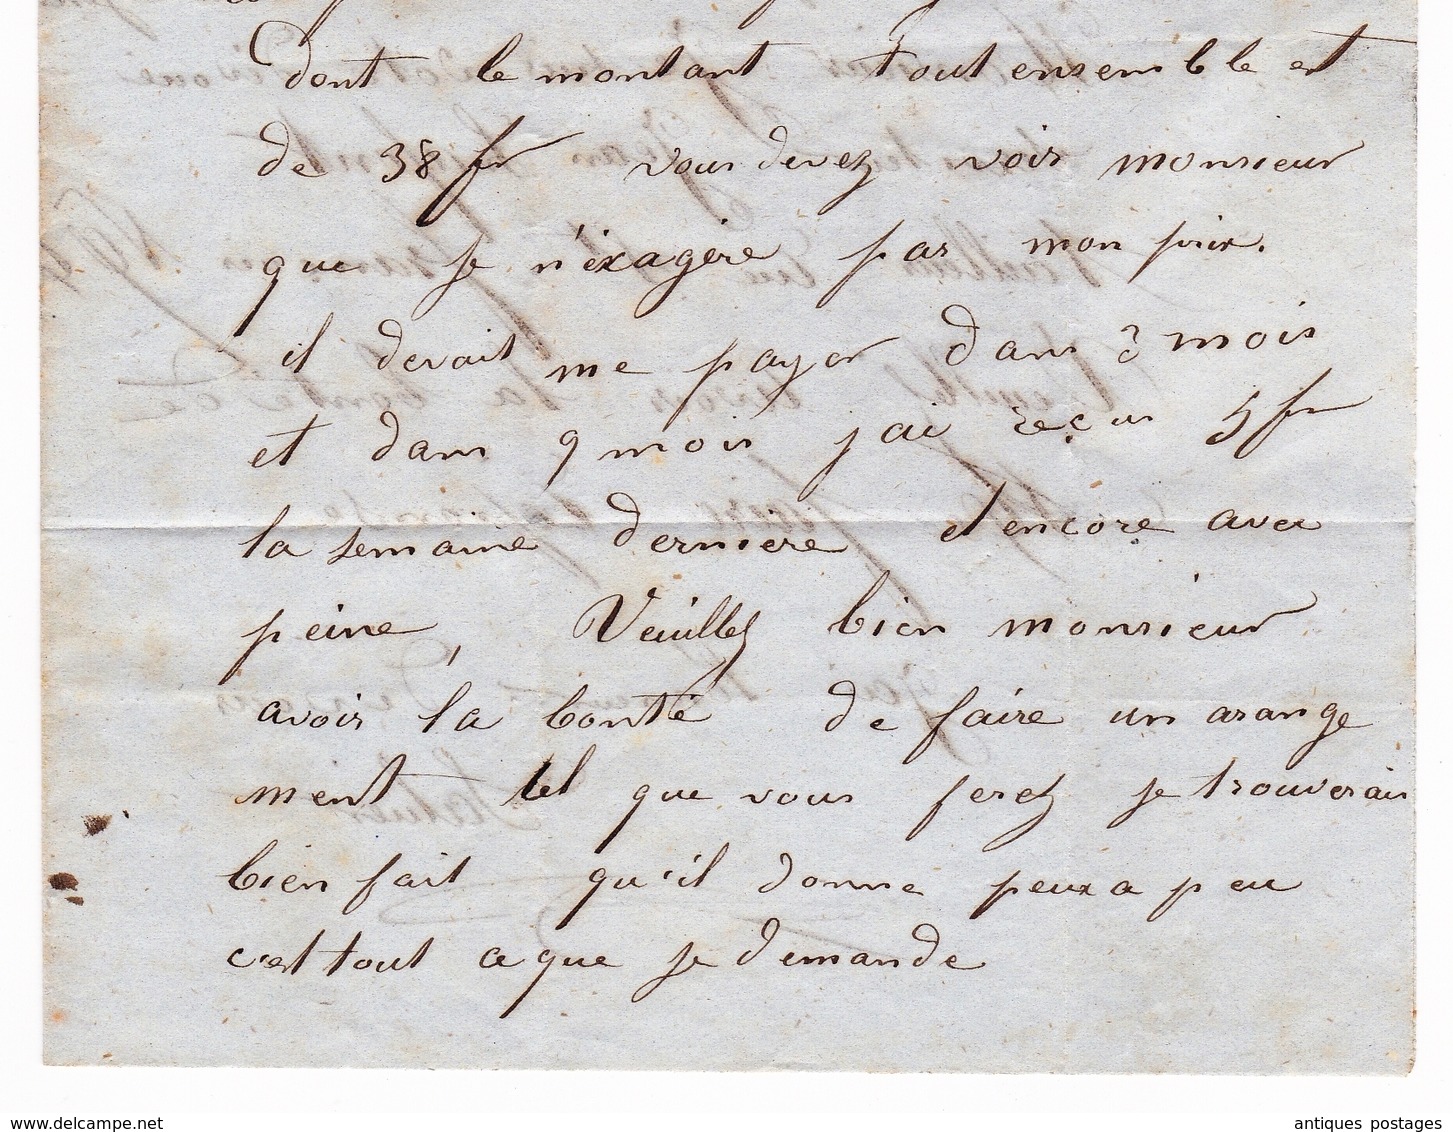 Dont le montant tout ensemble est
de 38 fr vous devez voir monsieur
que je n'éxagère pas mon prix.
il devait me payer dans 3 mois
et dans 9 mois j'ai reçus 5 fr
la semaine dernière et encore avec
peine, Veuillez bien monsieur
avoir la bonté de faire un arange
ment tel que vous ferez je trouverais
bien fait qu'il donne peux a peu
c'est tout ce que je demande
www.delcampe.net
antiques postages